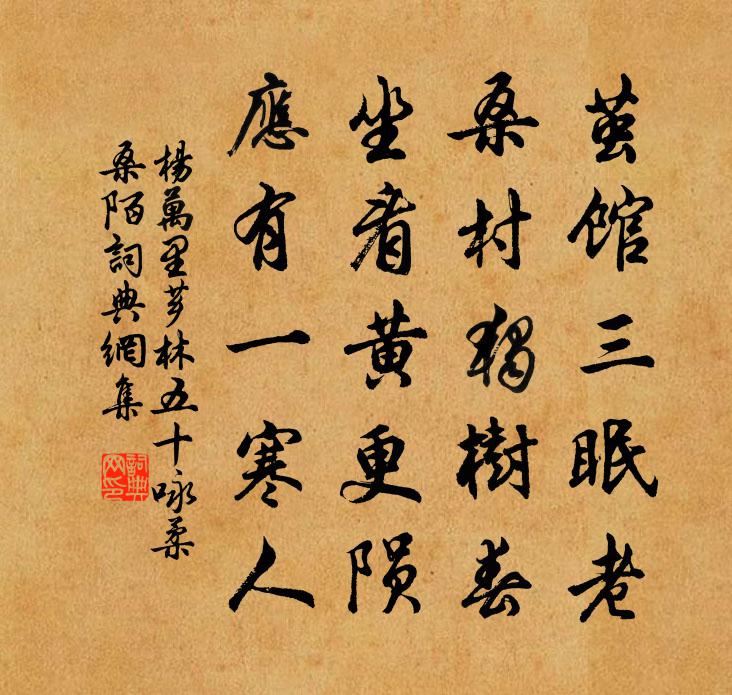 茧館三眠老
桑村獨樹春
坐看黄更陨
應有一寒人
楊萬里芗林五十咏柔
桑陌詞典網集
詞典网印